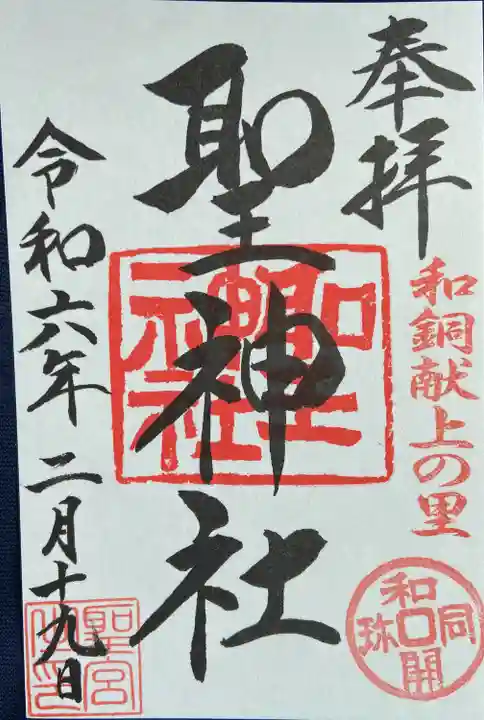 奉拝
和銅献上の里
和同開珎
聖神社
聖神社
令和六年二月十九日
聖宮